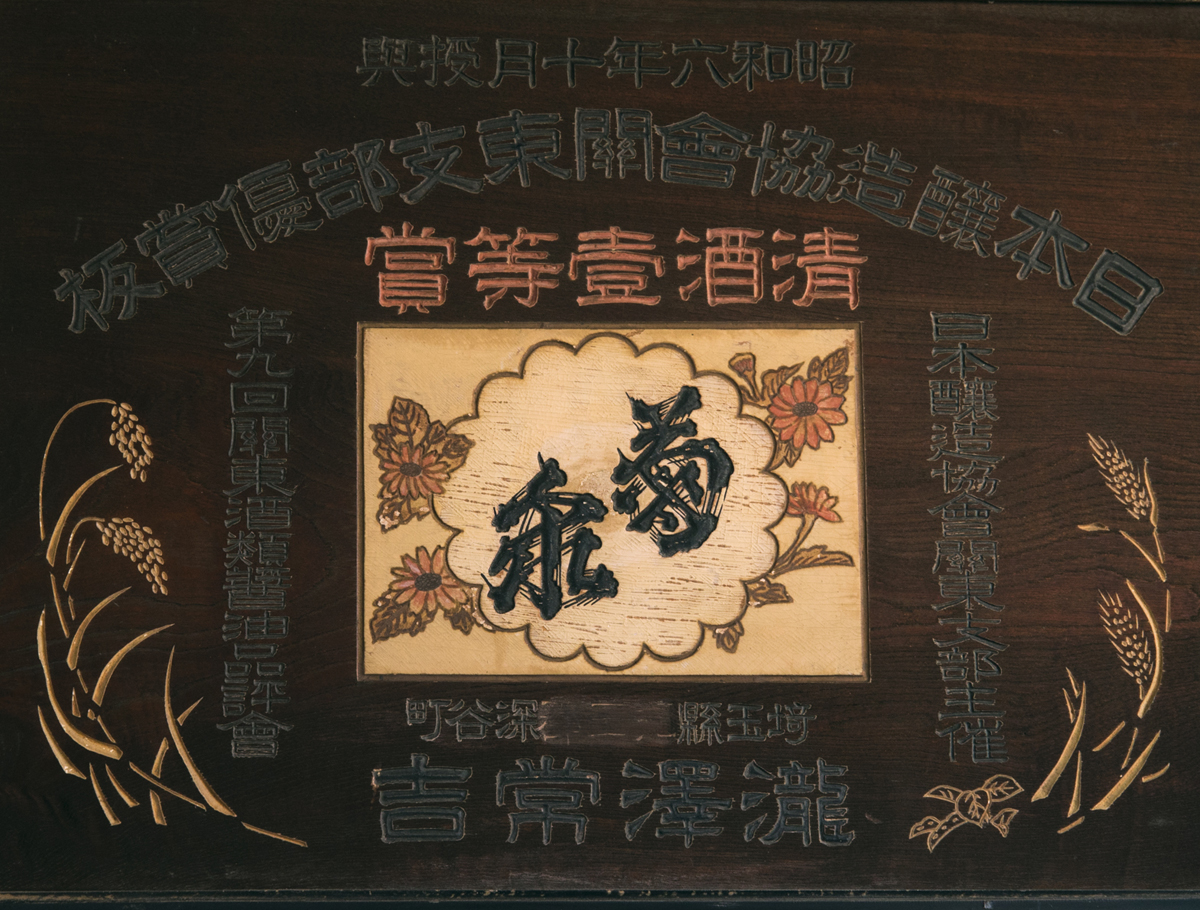 昭和六年十月授與
日本釀造協會關東支部優賞板
清酒壹等賞
日本釀造協會關東支部主催
第九回關東酒類醬油品評會
菊泉
埼玉縣 深谷町
瀧澤常吉